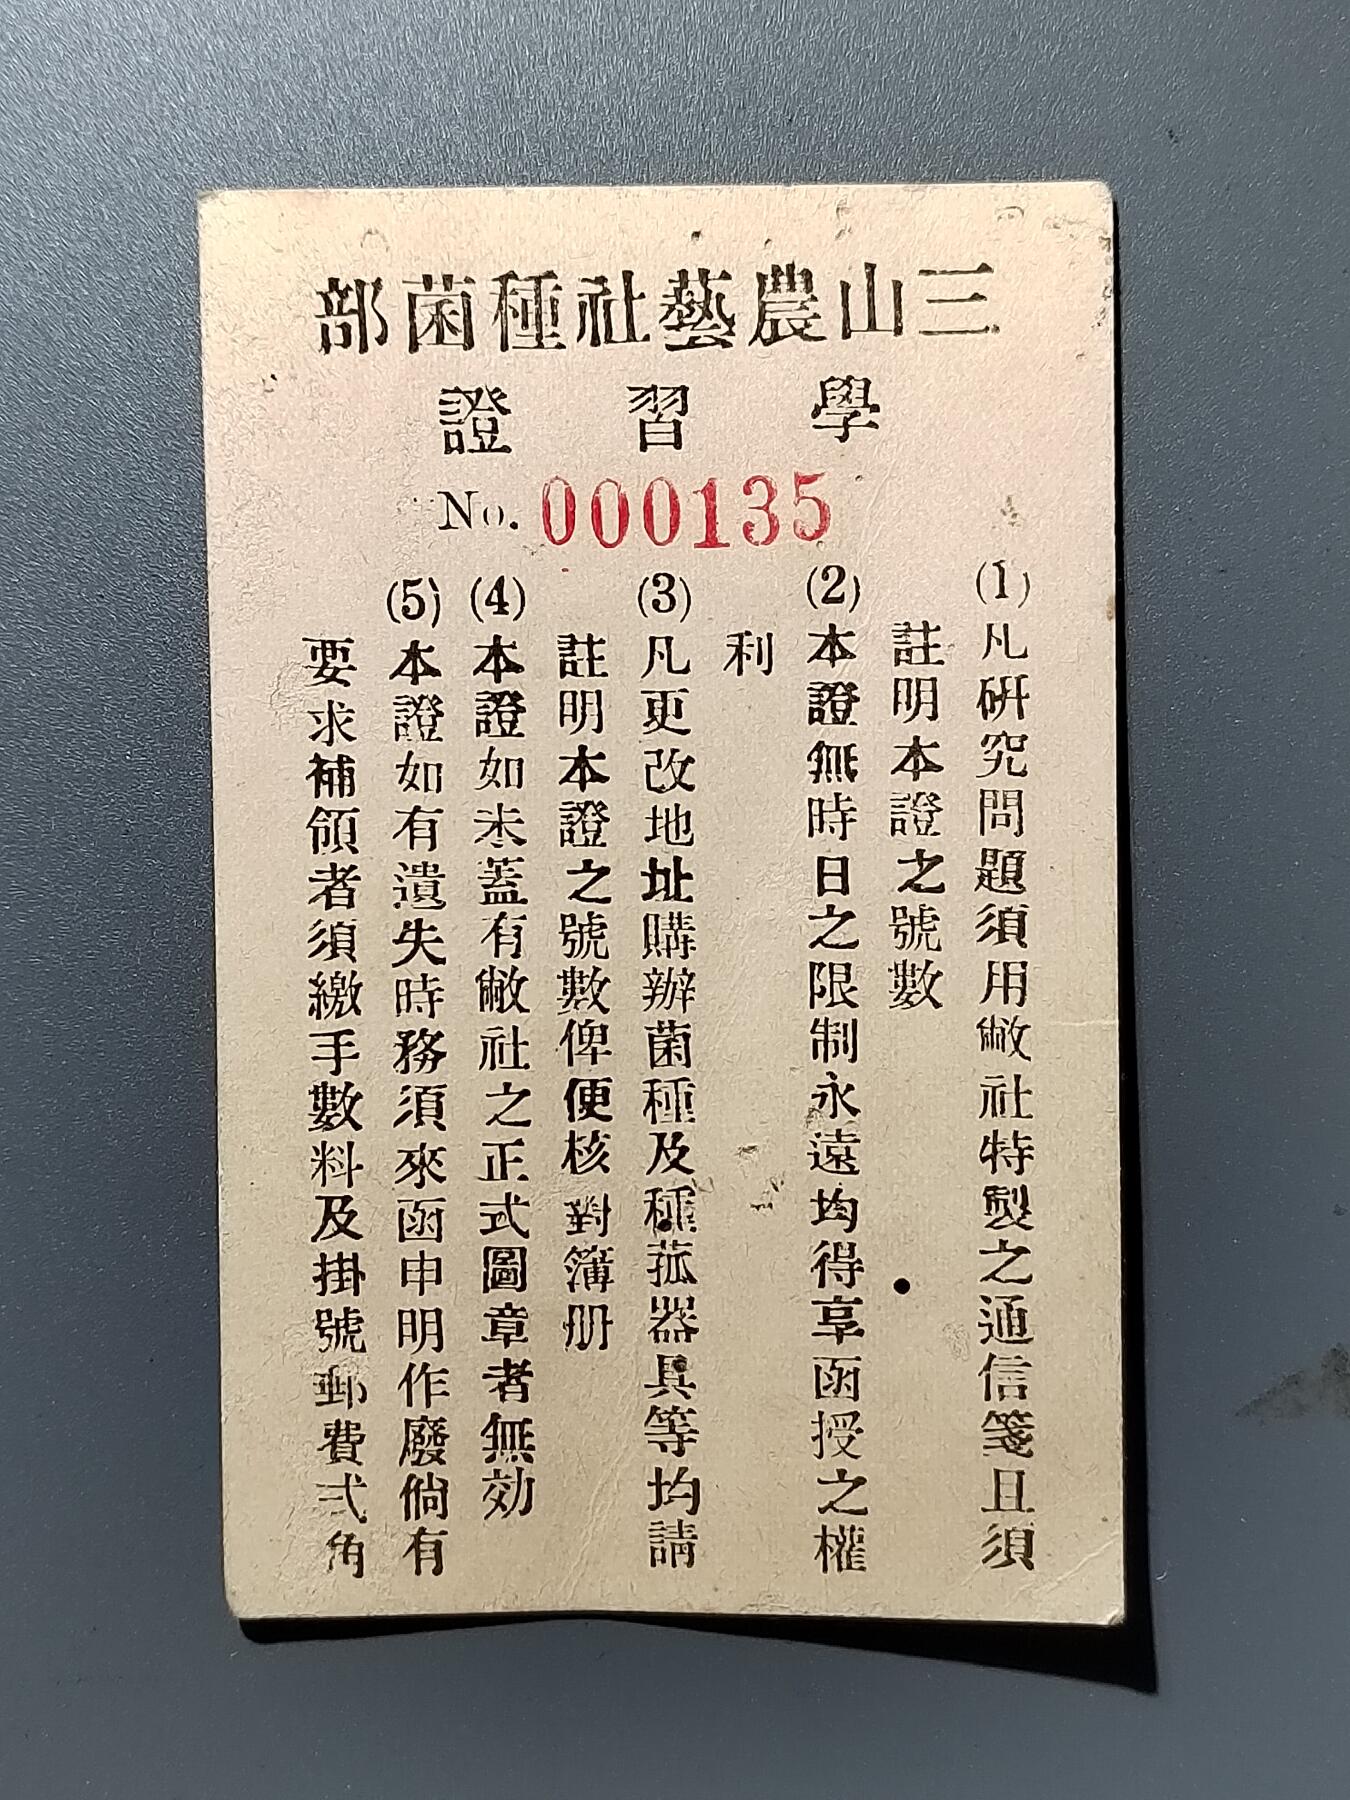 三山農藝社種菌部
學習證
No. 000135
(1)凡硏究問題須用敝社特製之通信箋且須
註明本證之號數
(2)本證無時日之限制永遠均得享函授之權
利
(3)凡更改地址購辦菌種及種菰器具等均請
註明本證之號數俾便核對簿册
(4)本證如未蓋有敝社之正式圖章者無効
(5)本證如有遺失時務須來函申明作廢倘有
要求補領者須繳手數料及掛號郵費弍角